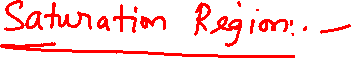 Saturation Region:. -